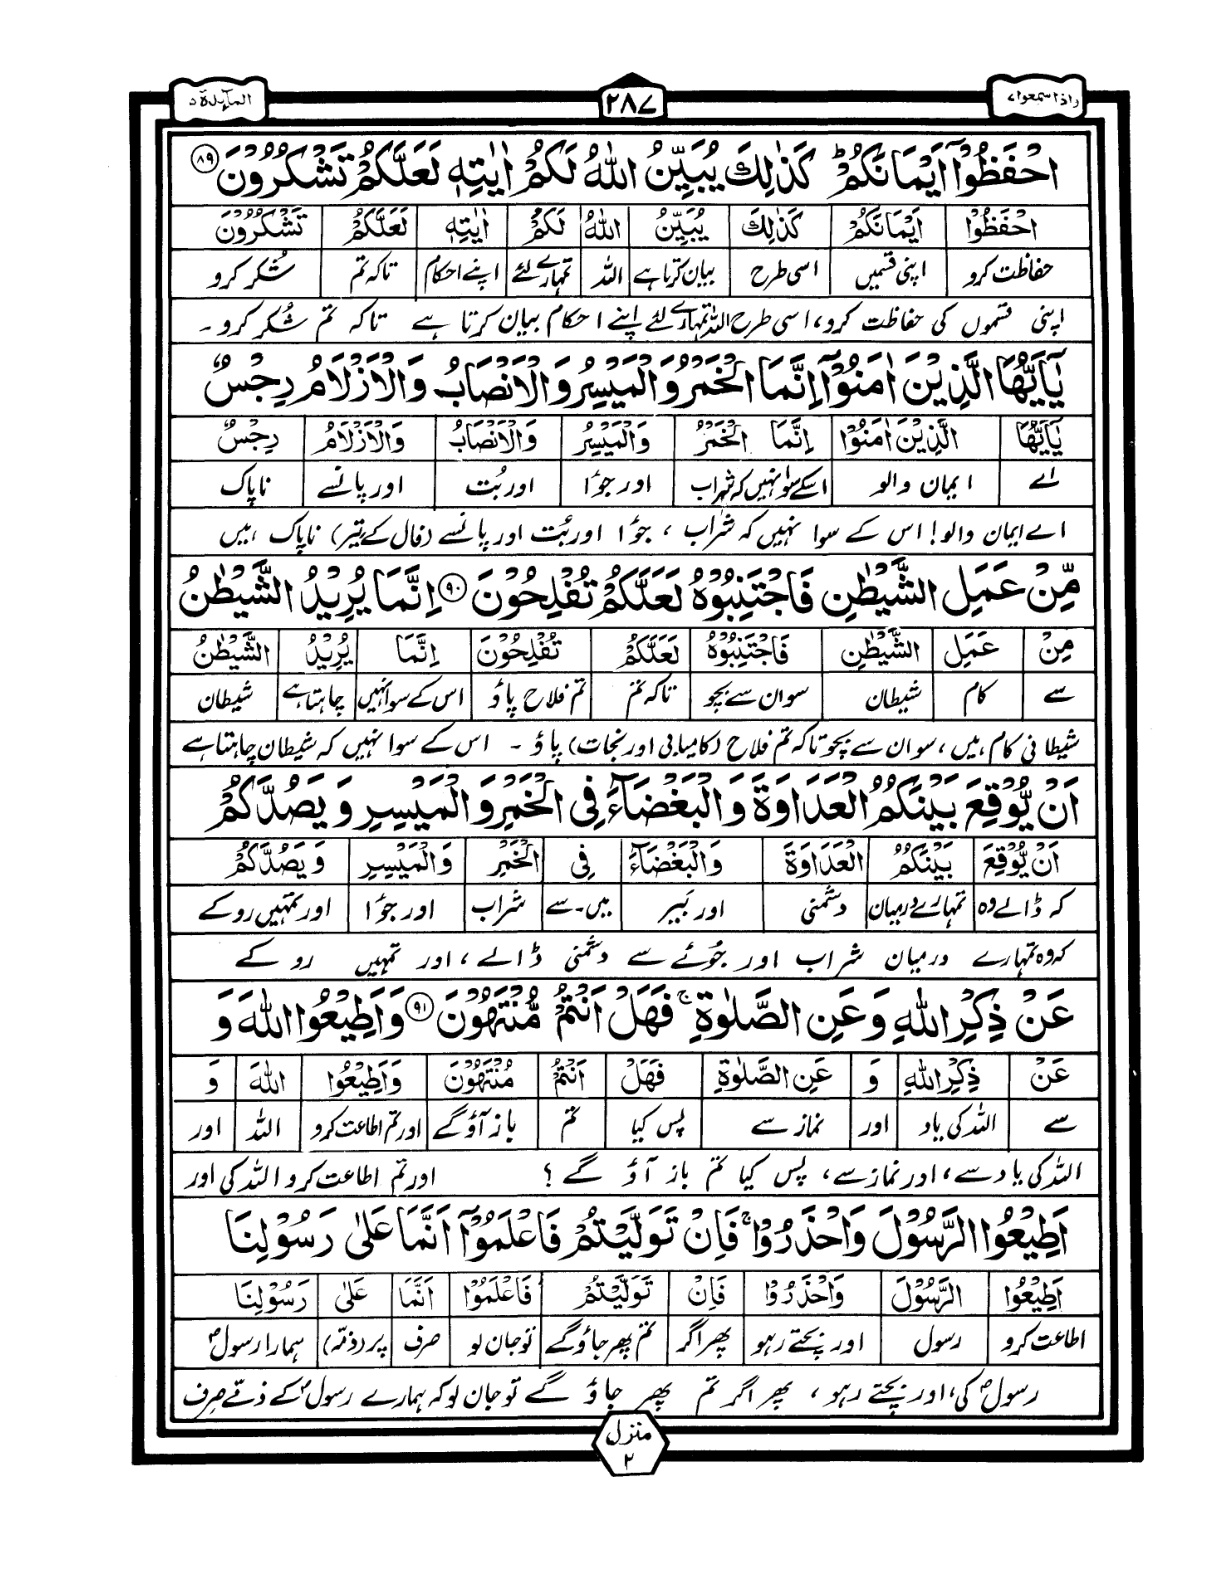 واذا سمعوا ۷
۲۸۷
المآىدة ۵
احْفَظُوْٓا اَیْمَانَكُمْ ؕ كَذٰلِكَ یُبَیِّنُ اللّٰهُ لَكُمْ اٰیٰتِهٖ لَعَلَّكُمْ تَشْكُرُوْنَ ۸۹
احْفَظُوْٓا اَیْمَانَكُمْ كَذٰلِكَ یُبَیِّنُ اللّٰهُ لَكُمْ اٰیٰتِهٖ لَعَلَّكُمْ تَشْكُرُوْنَ
حفاظت کرو اپنی قسمیں اسی طرح بیان کرتا ہے اللہ تمہارے لئے اپنے احکام تاکہ تم شکر کرو
اپنی قسموں کی حفاظت کرو، اسی طرح اللہ تمہارے لئے اپنے احکام بیان کرتا ہے تاکہ تم شُکر کرو ۔
یٰۤاَیُّهَا الَّذِیْنَ اٰمَنُوْۤا اِنَّمَا الْخَمْرُ وَالْمَیْسِرُ وَالْاَنْصَابُ وَالْاَزْلَامُ رِجْسٌ
یٰۤاَیُّهَا الَّذِیْنَ اٰمَنُوْۤا اِنَّمَا الْخَمْرُ وَالْمَیْسِرُ وَالْاَنْصَابُ وَالْاَزْلَامُ رِجْسٌ
اے ایمان والو اسکے سوا نہیں کہ شراب اور جوُا اور بُت اور پانسے ناپاک
اے ایمان والو! اس کے سوا نہیں کہ شراب ، جوُا اور بُت اور پانسے (فال کے تیر) ناپاک ہیں
مِّنْ عَمَلِ الشَّیْطٰنِ فَاجْتَنِبُوْهُ لَعَلَّكُمْ تُفْلِحُوْنَ ۹۰ اِنَّمَا یُرِیْدُ الشَّیْطٰنُ
مِنْ عَمَلِ الشَّیْطٰنِ فَاجْتَنِبُوْهُ لَعَلَّكُمْ تُفْلِحُوْنَ اِنَّمَا یُرِیْدُ الشَّیْطٰنُ
سے کام شیطان سو ان سے بچو تاکہ تم تم فلاح پاؤ اس کے سوا نہیں چاہتا ہے شیطان
شیطانی کام ہیں، سو ان سے بچو تاکہ تم فلاح (کامیابی اور نجات) پاؤ ۔ اس کے سوا نہیں کہ شیطان چاہتا ہے
اَنْ یُّوْقِعَ بَیْنَكُمُ الْعَدَاوَةَ وَالْبَغْضَآءَ فِی الْخَمْرِ وَالْمَیْسِرِ وَ یَصُدَّكُمْ
اَنْ یُّوْقِعَ بَیْنَكُمُ الْعَدَاوَةَ وَالْبَغْضَآءَ فِی الْخَمْرِ وَالْمَیْسِرِ وَ یَصُدَّكُمْ
کہ ڈالے وہ تمہارے درمیان دشمنی اور بَیر میں۔سے شراب اور جوُا اور تمہیں روکے
کہ وہ تمہارے درمیان شراب اور جوُئے سے دشمنی ڈالے ، اور تمہیں روکے
عَنْ ذِكْرِ اللّٰهِ وَ عَنِ الصَّلٰوةِ ۚ فَهَلْ اَنْتُمْ مُّنْتَهُوْنَ ۹۱ وَ اَطِیْعُوا اللّٰهَ وَ
عَنْ ذِكْرِ اللّٰهِ وَ عَنِ الصَّلٰوةِ فَهَلْ اَنْتُمْ مُنْتَهُوْنَ وَ اَطِیْعُوا اللّٰهَ وَ
سے اللہ کی یاد اور نماز سے پس کیا تم باز آؤ گے اور تم اطاعت کرو اللہ اور
اللہ کی یاد سے ، اور نماز سے، پس کیا تم باز آؤ گے ؟ اور تم اطاعت کرو اللہ کی اور
اَطِیْعُوا الرَّسُوْلَ وَاحْذَرُوْا ۚ فَاِنْ تَوَلَّیْتُمْ فَاعْلَمُوْۤا اَنَّمَا عَلٰی رَسُوْلِنَا
اَطِیْعُوا الرَّسُوْلَ وَاحْذَرُوْا فَاِنْ تَوَلَّیْتُمْ فَاعْلَمُوْۤا اَنَّمَا عَلٰی رَسُوْلِنَا
اطاعت کرو رسول اور بچتے رہو پھر اگر تم پھر جاؤ گے تو جان لو صرف پر (ذمّہ) ہمارا رسولؐ
رسولؐ کی، اور بچتے رہو ، پھر اگر تم پھر جاؤ گے تو جان لو کہ ہمارے رسولؐ کے ذمّے صرف
منزل
۲